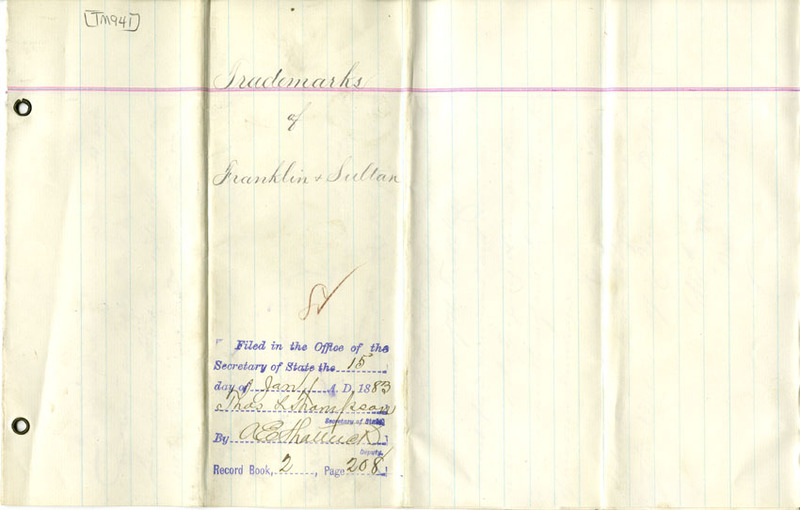 [TM941]
Trademarks
of
Franklin & Sultan
Filed in the Office of the
Secretary of State the 15
day of Jany A. D. 1883
Thos L Thompson
Secretary of State
By A E Shattuck
Deputy.
Record Book, 2, Page 208